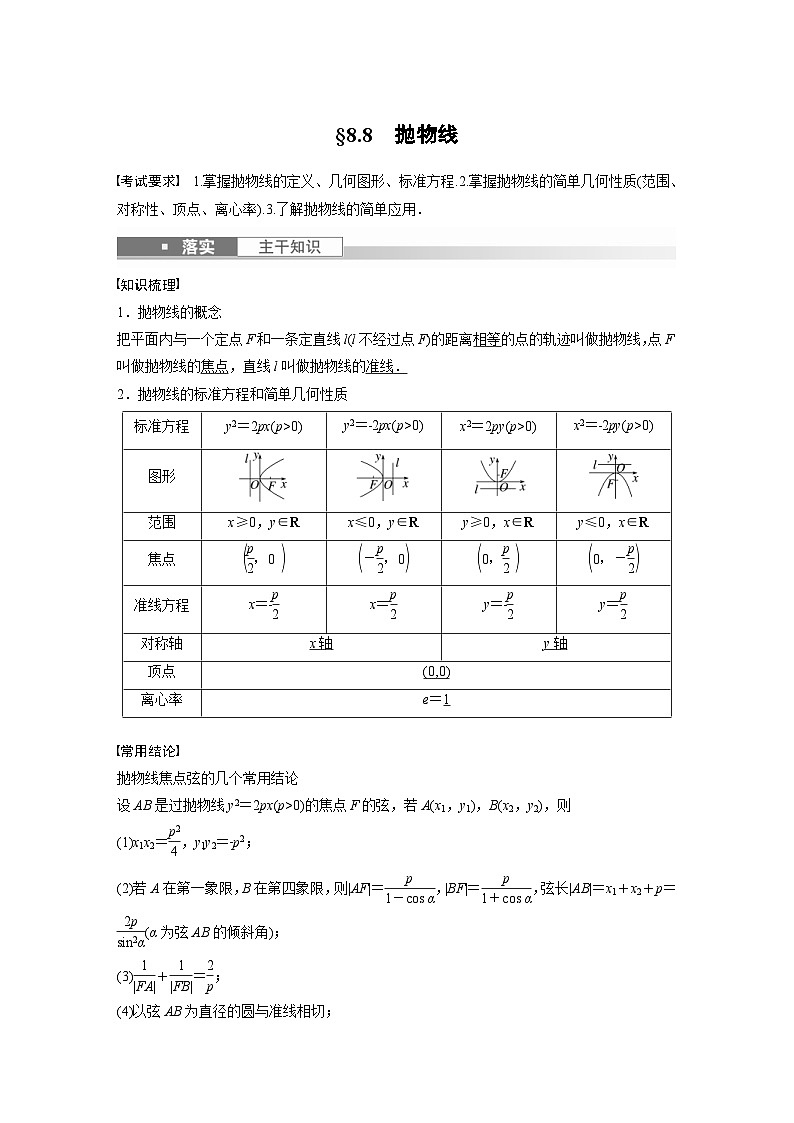 §8.8 抛物线
考试要求 1.掌握抛物线的定义、几何图形、标准方程.2.掌握抛物线的简单几何性质(范围、
对称性、顶点、离心率).3.了解抛物线的简单应用.
落实 主干知识
知识梳理
1．抛物线的概念
把平面内与一个定点 F 和一条定直线 l(l 不经过点 F)的距离相等的点的轨迹叫做抛物线，点 F
叫做抛物线的焦点，直线 l 叫做抛物线的准线．
2．抛物线的标准方程和简单几何性质
标准方程 y²＝2px(p>0) y²＝-2px(p>0) x²＝2py(p>0) x²＝-2py(p>0)
图形 l y O F x y l F O x y F l O x l y O F x
范围 x≥0，y∈R x≤0，y∈R y≥0，x∈R y≤0，x∈R
焦点 (p/2，0) (－p/2，0) (0，p/2) (0，－p/2)
准线方程 x＝-p/2 x＝p/2 y＝-p/2 y＝p/2
对称轴 x 轴 y 轴
顶点 (0,0)
离心率 e＝1
常用结论
抛物线焦点弦的几个常用结论
设 AB 是过抛物线 y²＝2px(p>0)的焦点 F 的弦，若 A(x₁，y₁)，B(x₂，y₂)，则
(1)x₁x₂＝p²/4，y₁y₂＝-p²；
(2)若 A 在第一象限，B 在第四象限，则|AF|＝p/(1－cos α)，|BF|＝p/(1＋cos α)，弦长|AB|＝x₁＋x₂＋p＝
2p/sin²α(α 为弦 AB 的倾斜角)；
(3)1/|FA|＋1/|FB|＝2/p；
(4)以弦 AB 为直径的圆与准线相切；